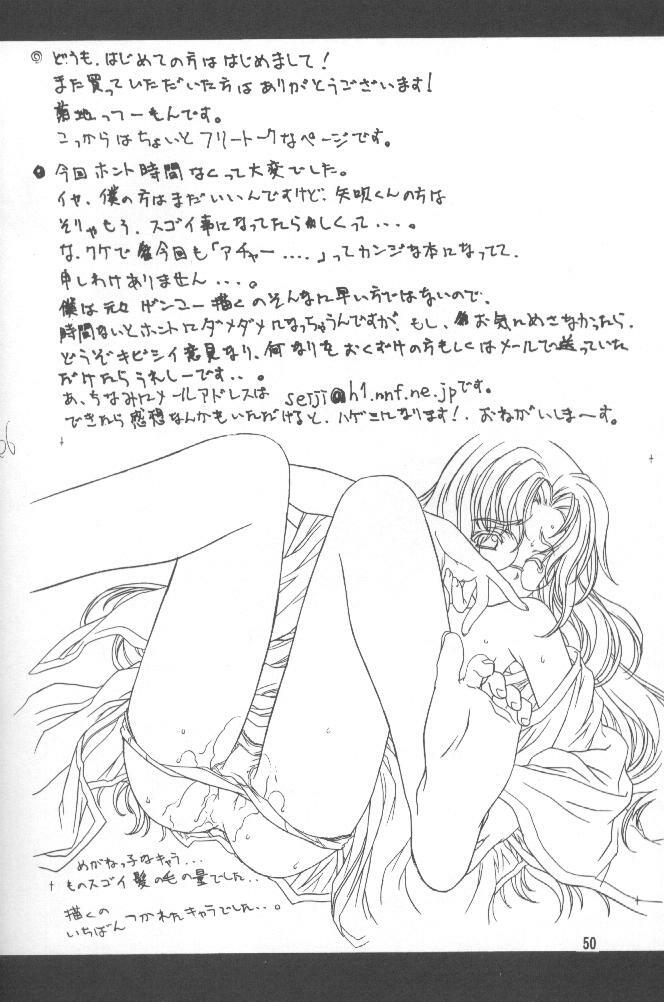 ◎ どうも、はじめての方ははじめまして!
また買っていただいた方はありがとうございます!
菊地ってーもんです。
こっからはちょいとフリートークなページです。
● 今回ホント時間なくって大変でした。
イヤ、僕の方はまだいいんですけど、矢吹くんの方は
そりゃもう、スゴイ事になってたらしくって・・・。
な、ワケで今回も「アチャー・・・・」ってカンジな本になってて、
申しわけありません・・・。
僕は元々ゲンコー描くのそんなに早い方ではないので、
時間ないとホントにダメダメになっちゃうんですが、もし、お気にめさなかったら、
どうぞキビシイ意見なり、何なりをおくづけの方もしくはメールで送っていた
だけたらうれしーです・・。
あ、ちなみにメールアドレスは seiji@h1.nnf.ne.jpです。
できたら感想なんかもいただけると、ハゲミになります!、おねがいしま〜す。
めがねっ子なキャラ・・・
ものスゴイ髪の毛の量でした・・
描くの
いちばんつかれたキャラでした・・。
50